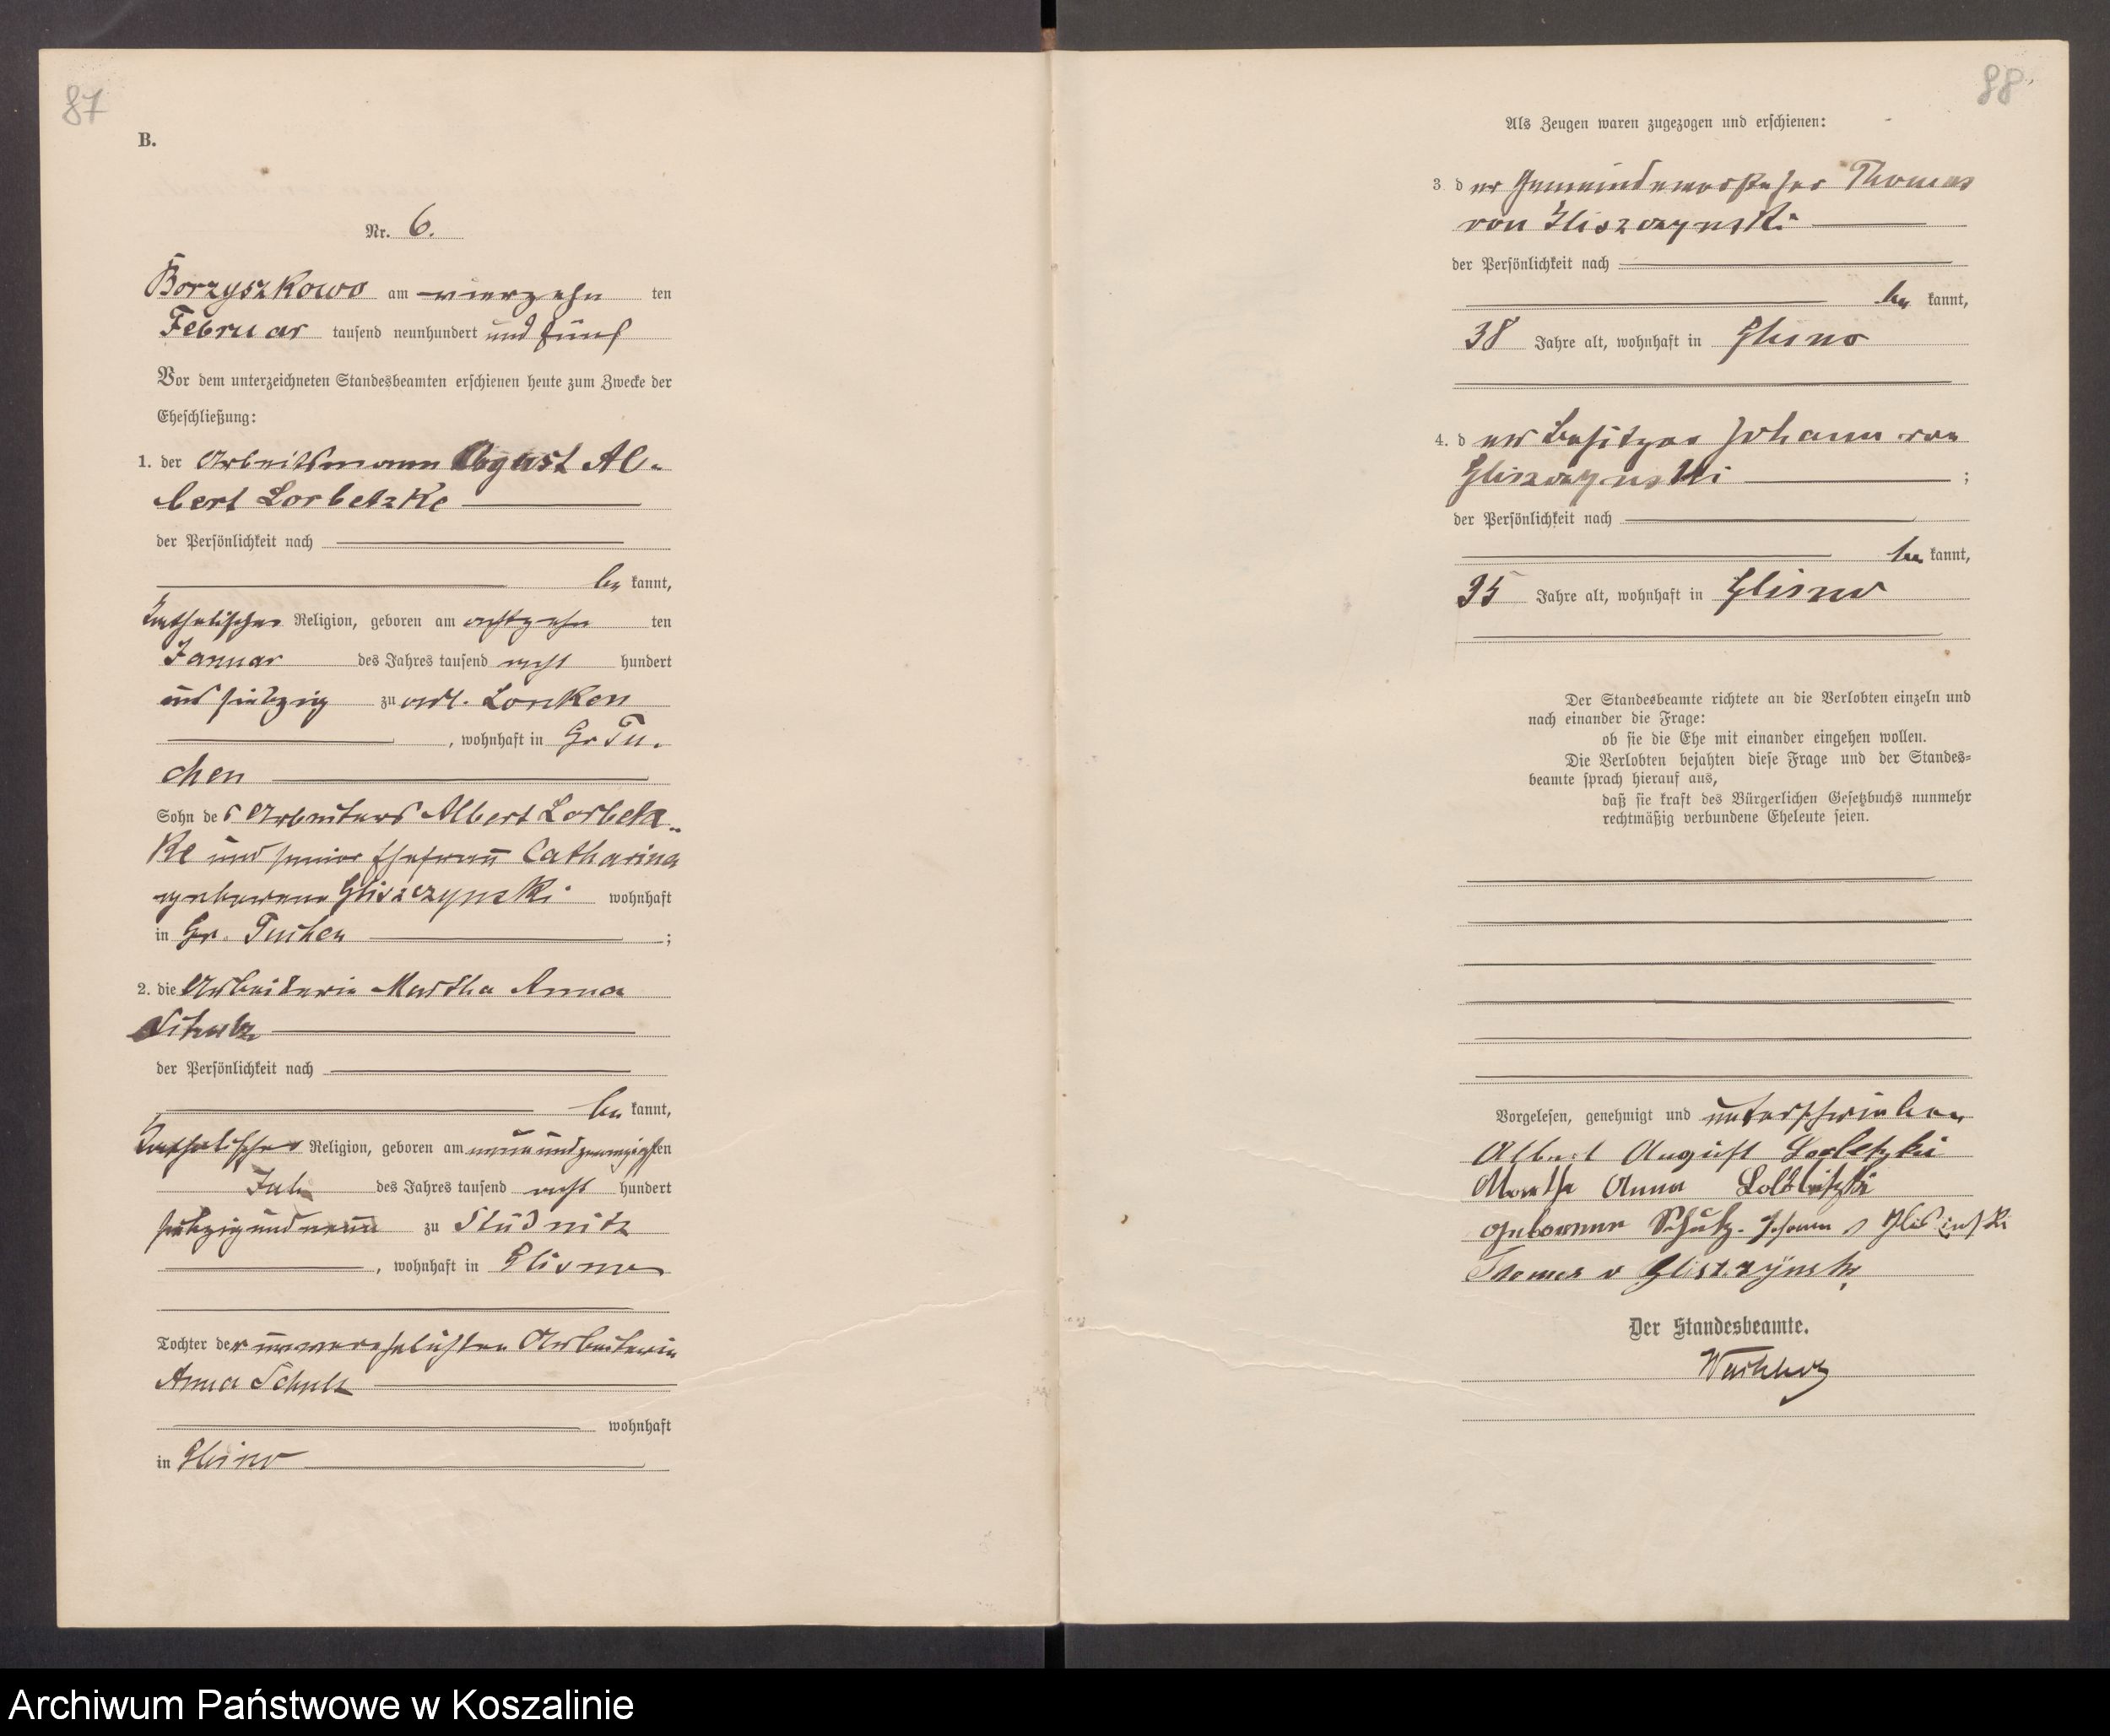 87
B.
Nr. 6.
Borzyszkowo am vierzehn ten
Februar tausend neunhundert und fünf
Vor dem unterzeichneten Standesbeamten erschienen heute zum Zwecke der
Eheschließung:
1. der Arbeitsmann August Al-
bert Lorbetzke
der Persönlichkeit nach
be kannt,
katholischer Religion, geboren am achtzehn ten
Januar des Jahres tausend acht hundert
und siebzig zu adl. Lonken
, wohnhaft in Gr Tu-
chen
Sohn des Arbeiters Albert Lorbetz-
ke und seiner Ehefrau Catharina
geborene Gliszczynski wohnhaft
in Gr. Tuchen ;
2. die Arbeiterin Martha Anna
Schulz
der Persönlichkeit nach
be kannt,
katholischer Religion, geboren am neunundzwanzigsten
Juli des Jahres tausend acht hundert
siebzig und neun zu Stüdnitz
, wohnhaft in Glisno
Tochter der unverehelichten Arbeiterin
Anna Schulz
wohnhaft
in Glisno
88.
Als Zeugen waren zugezogen und erschienen:
3. der Gemeindevorsteher Thomas
von Gliszczynski
der Persönlichkeit nach
be kannt,
38 Jahre alt, wohnhaft in Glisno
4. der Besitzer Johann von
Gliszczynski ;
der Persönlichkeit nach
be kannt,
35 Jahre alt, wohnhaft in Glisno
Der Standesbeamte richtete an die Verlobten einzeln und
nach einander die Frage:
ob sie die Ehe mit einander eingehen wollen.
Die Verlobten bejahten diese Frage und der Standes-
beamte sprach hierauf aus,
daß sie kraft des Bürgerlichen Gesetzbuchs nunmehr
rechtmäßig verbundene Eheleute seien.
Vorgelesen, genehmigt und unterschrieben
Albert August Lorbetzki
Martha Anna
geborene Schulz. Johann v
Thomas v Gliszczynski
Der Standesbeamte.
Archiwum Państwowe w Koszalinie